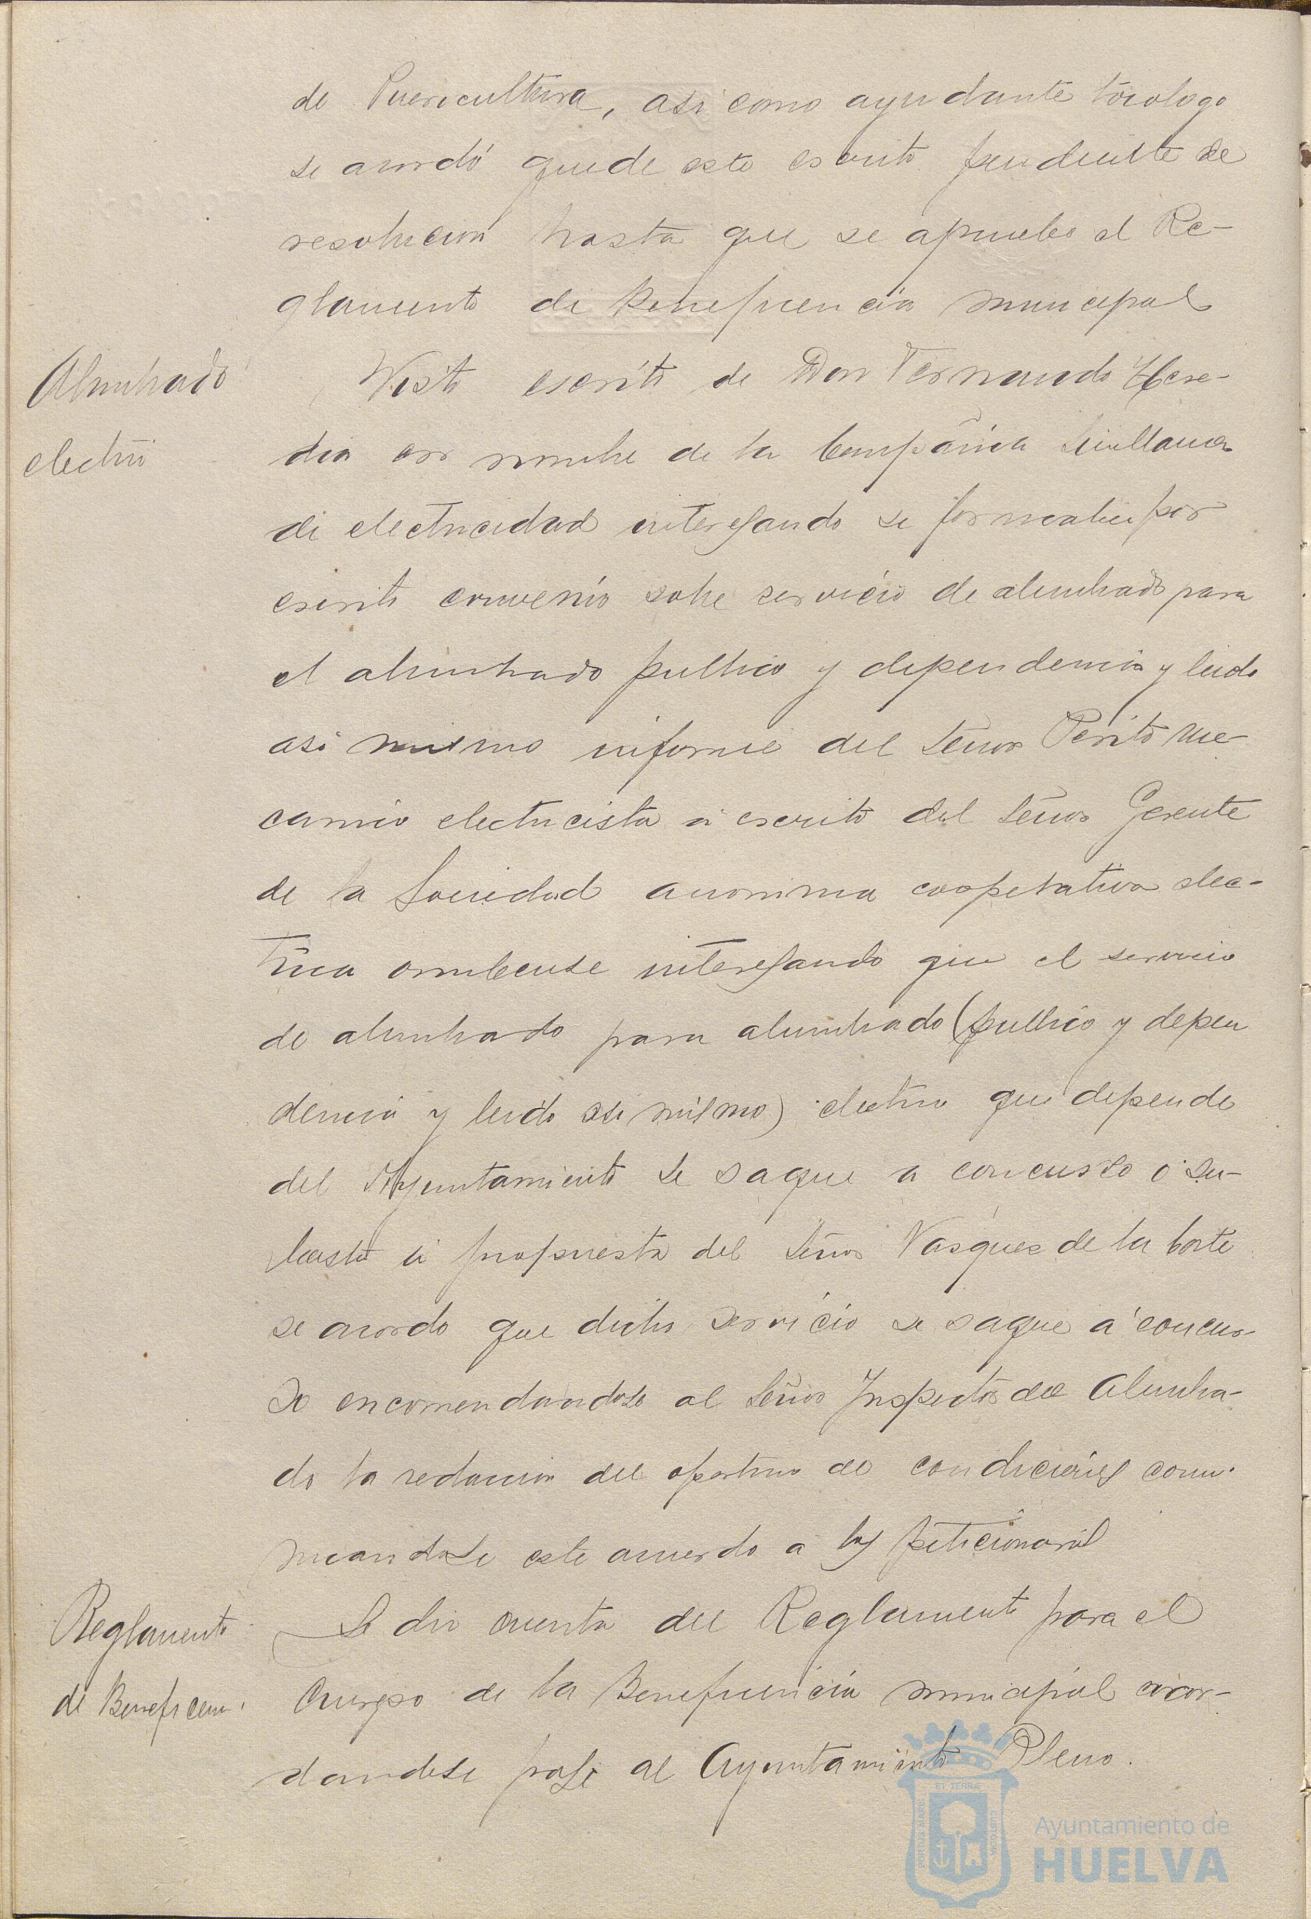 de Puericultura, asi como ayudante tocologo
se acordó quede este escrito pendiente de
resolucion hasta que se apruebe el Re-
glamento de Beneficencia municipal
Alumbrado
electri
Visto escrito de Don Fernando Here-
dia en nombre de la Compañia Sevillana
de electricidad interesando se formalice por
escrito convenio sobre servicio de alumbrado para
el alumbrado publico y dependencia y leido
asi mismo informe del Señor Perito me-
canico electricista a escrito del Señor Gerente
de la Sociedad anonima cooperativa elec-
trica onubense interesando que el servicio
de alumbrado para alumbrado (publico y depen
dencia y leido asi mismo) electrico que depende
del Ayuntamiento se saque a concurso o su-
basta a propuesta del Señor Vasques de la Corte
se acordo que dicho servicio se saque á concur-
so encomendandose al Señor Inspector del Alumbra-
do la redaccion del oportuno de condiciones comu-
nicandose este acuerdo a los peticionarios
Reglamento
de Beneficen.
Se dio cuenta del Reglamento para el
Cuerpo de la Beneficencia municipal acor-
dandose pase al Ayuntamiento Pleno.
Ayuntamiento de
HUELVA